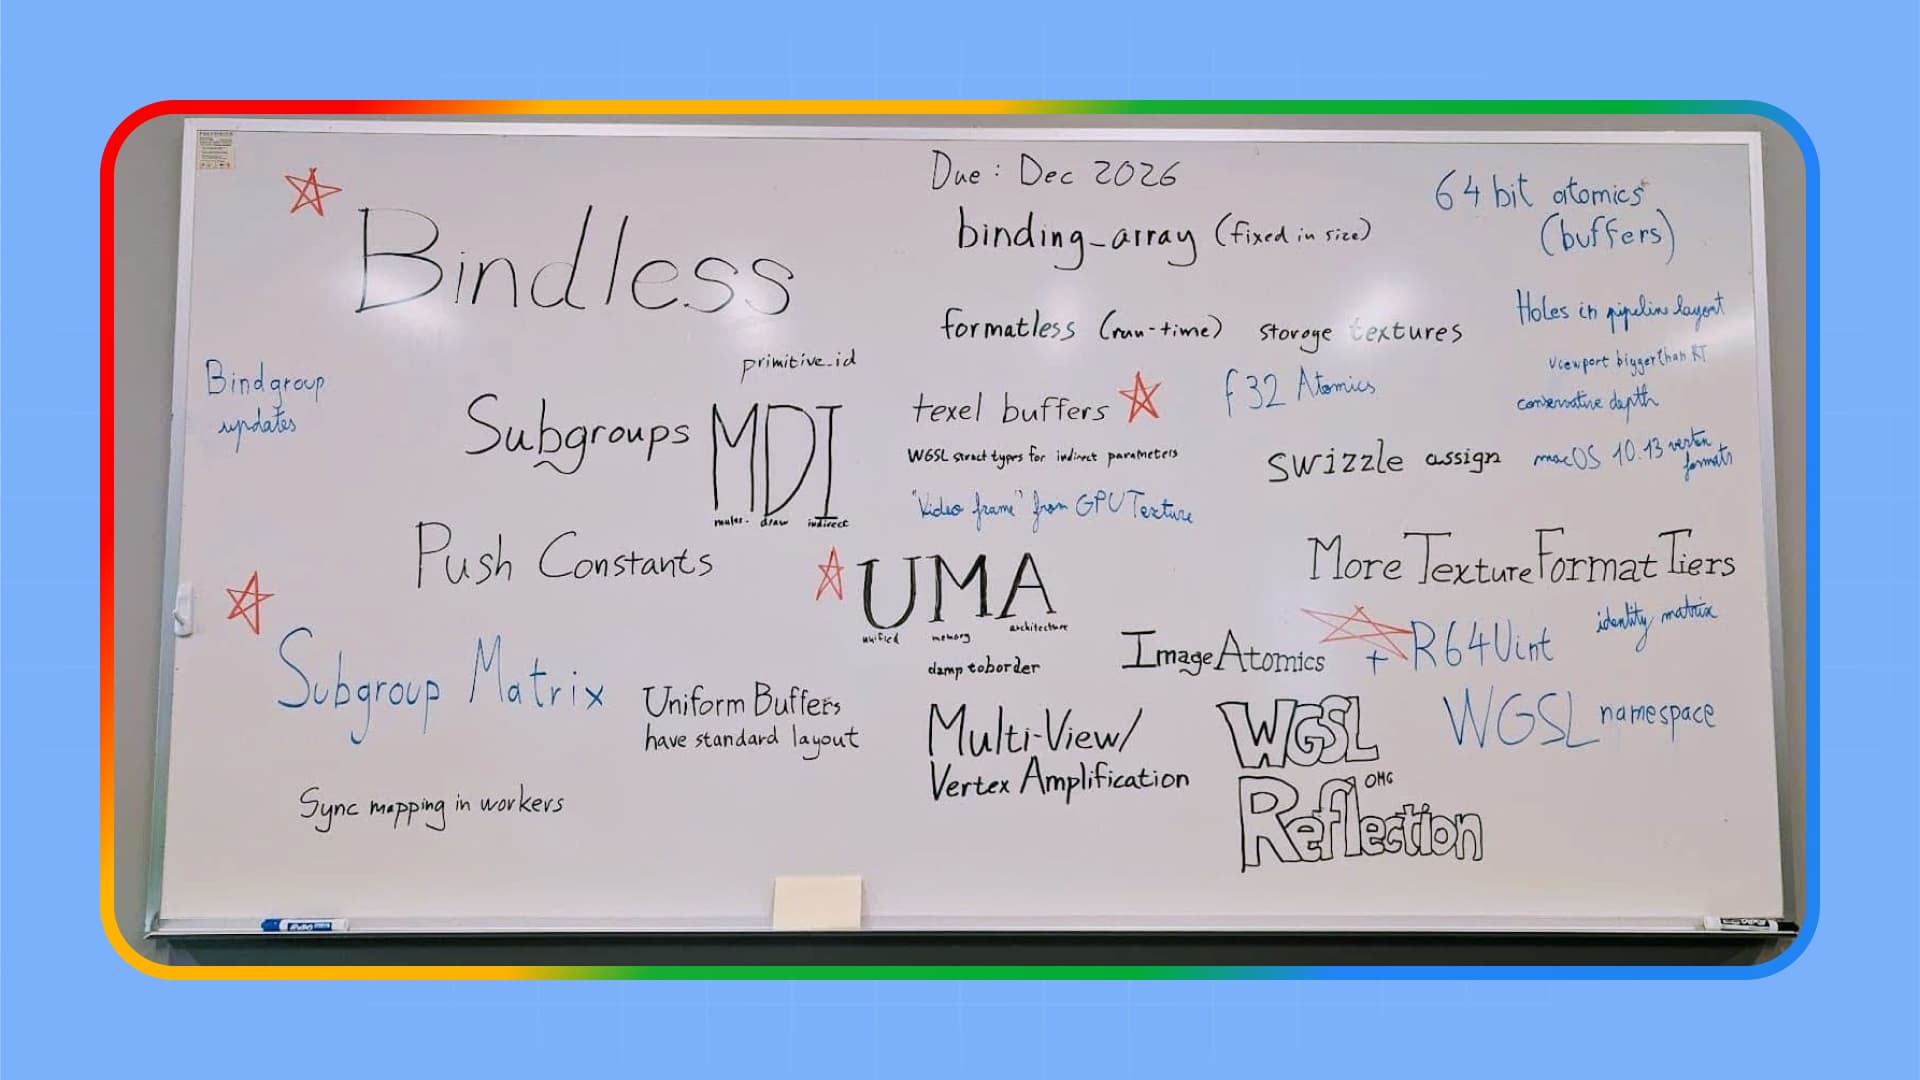 Due: Dec 2026
Bindless
binding_array (fixed in size)
64 bit atomics
(buffers)
formatless (run-time) storage textures
Holes in pipeline layout
primitive_id
viewport bigger than RT
Bindgroup
updates
Subgroups
MDI
multi- draw indirect
texel buffers
f32 Atomics
conservative depth
WGSL struct types for indirect parameters
swizzle assign
macOS 10.13 vertex
formats
"Video frame" from GPUTexture
Push Constants
UMA
unified memory architecture
More Texture Format Tiers
identity matrix
Image Atomics + R64Uint
clamp to border
Subgroup Matrix
Uniform Buffers
have standard layout
Multi-View/
Vertex Amplification
WGSL
OMG
Reflection
WGSL namespace
Sync mapping in workers